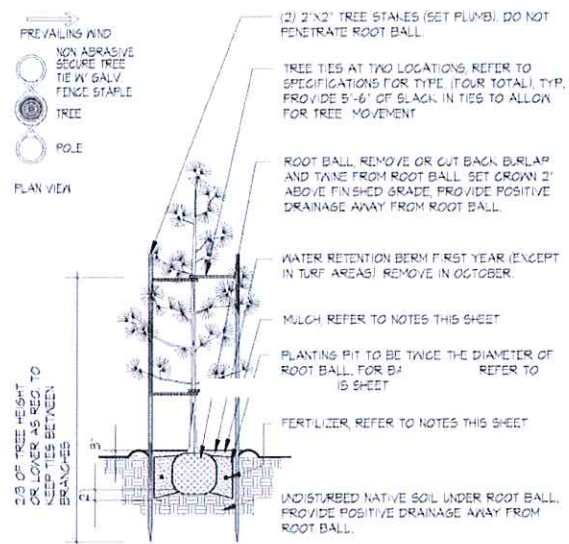 PREVAILING WIND
NON ABRASIVE
SECURE TREE
TIE W/ GALV.
FENCE STAPLE
TREE
POLE
PLAN VIEW
(2) 2"X2" TREE STAKES (SET PLUMB). DO NOT
PENETRATE ROOT BALL.
TREE TIES AT TWO LOCATIONS, REFER TO
SPECIFICATIONS FOR TYPE, (FOUR TOTAL), TYP.
PROVIDE 5"-6" OF SLACK IN TIES TO ALLOW
FOR TREE MOVEMENT
ROOT BALL, REMOVE OR CUT BACK BURLAP
AND TWINE FROM ROOT BALL. SET CROWN 2"
ABOVE FINISHED GRADE, PROVIDE POSITIVE
DRAINAGE AWAY FROM ROOT BALL.
WATER RETENTION BERM FIRST YEAR (EXCEPT
IN TURF AREAS) REMOVE IN OCTOBER.
MULCH, REFER TO NOTES THIS SHEET
PLANTING PIT TO BE TWICE THE DIAMETER OF
ROOT BALL, FOR REFER TO
SHEET
FERTILIZER, REFER TO NOTES THIS SHEET
UNDISTURBED NATIVE SOIL UNDER ROOT BALL,
PROVIDE POSITIVE DRAINAGE AWAY FROM
ROOT BALL.
2/3 OF TREE HEIGHT
OR LOWER AS REQ. TO
KEEP TIES BETWEEN
BRANCHES
3"